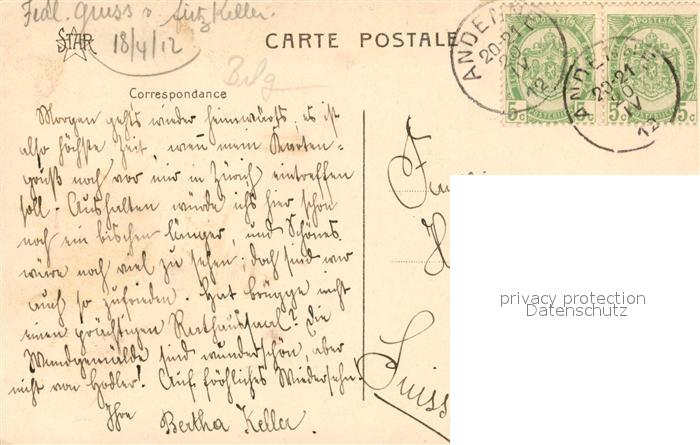 Frdl. Gruss v. Fritz Keller.
STAR
18/4/12
CARTE POSTALE
ANDENNE
20-21
IV
12
ANDENNE
20-21
20
IV
12
POSTES
POSTES
5c 5c
5c 5c
Belg
Correspondance
Morgen geht's wieder heimwärts; es ist
also höchste Zeit, wenn mein Karten-
gruß noch vor mir in Zürich eintreffen
soll. Aushalten würde ich's hier schon
noch ein bischen länger, und Schönes
wäre noch viel zu sehen; doch sind wir
auch so zufrieden. Hat Brügge nicht
einen prächtigen Rathaussaal? Die
Wandgemälde sind wunderschön, aber
nicht von Hodler! Auf fröhliches Wiedersehn!
Ihre
Bertha Keller.
Suiss
privacy protection
Datenschutz